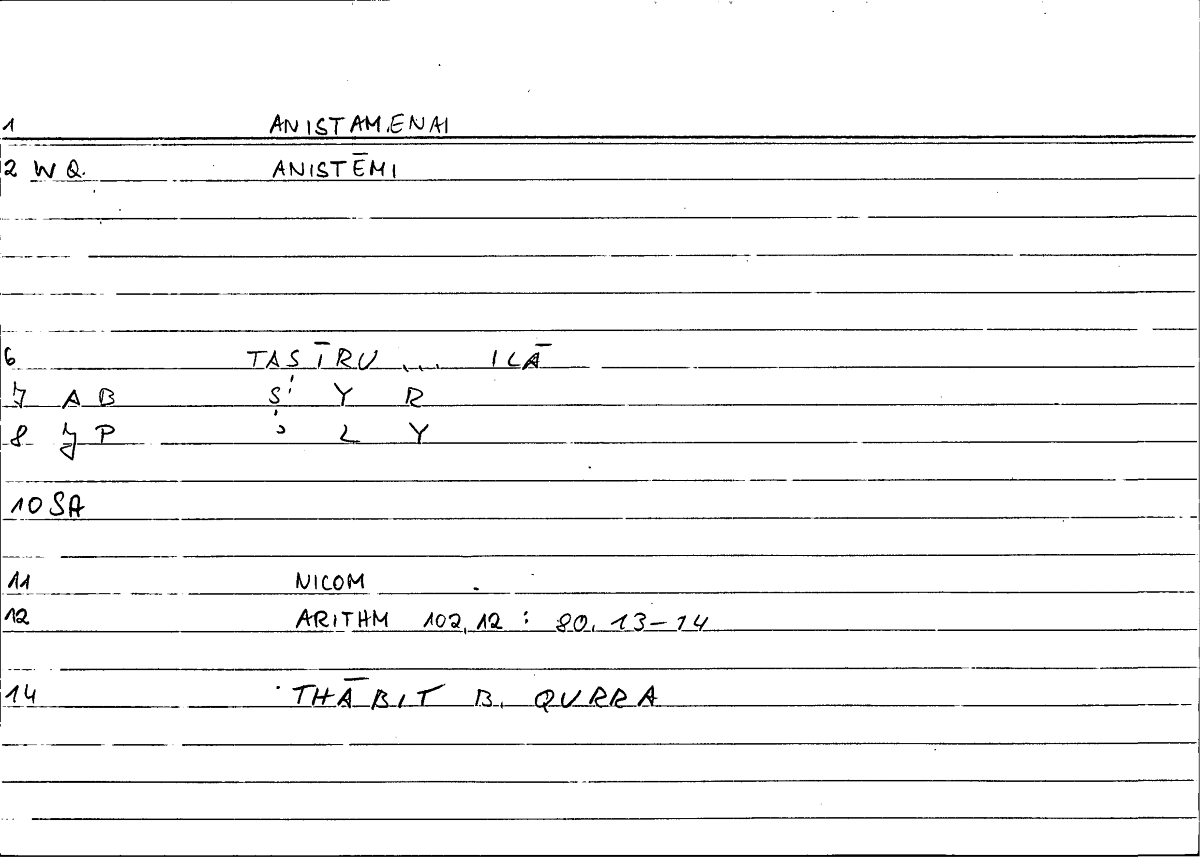 1 ANISTAMENAI
2 WQ. ANISTĒMI
6 TAṢĪRU ... ILĀ
7 AB Ṣ Y R
8 JP ʾ L Y
10 SA
11 NICOM
12 ARITHM 102,12 : 80,13-14
14 THĀBIT B. QURRA